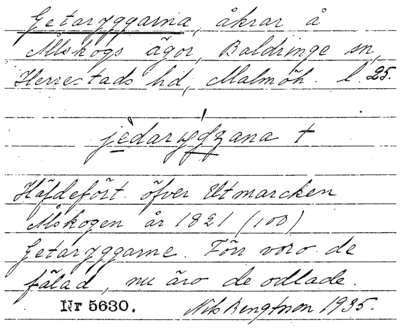 Getaryggarna, åkrar å
Mskogs ägor, Baldringe sn,
Herrestads hd, Malmöh. l. 25.
jèdarýdzana +
Häfdefört öfver Utmarcken
Åskogen år 1821 (100)
Getaryggarne. Förr voro de
fälad, nu äro de odlade.
Nr 5630. Nils Bengtsson 1935.